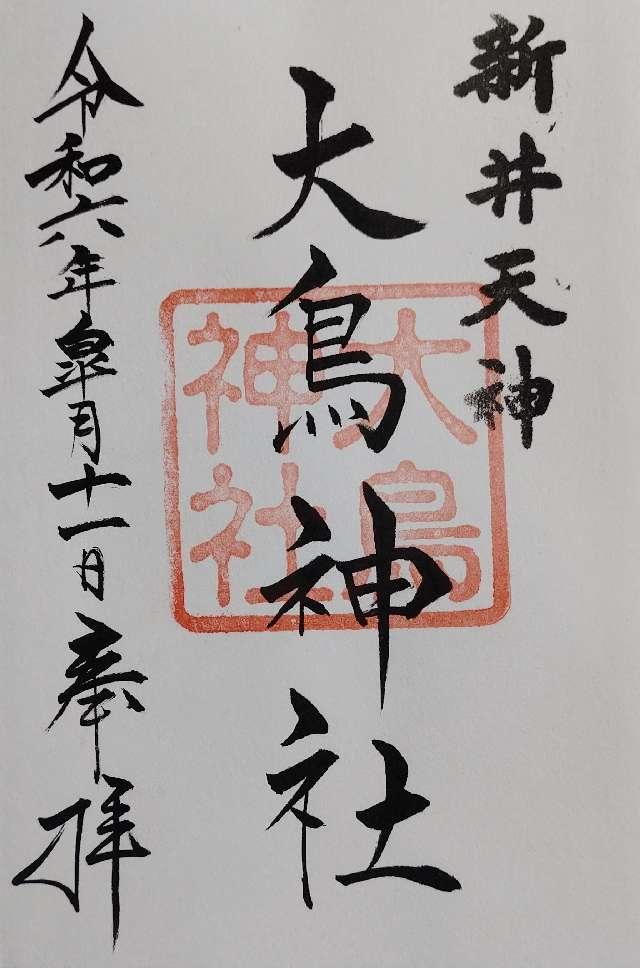 新井天神
大鳥神社
大鳥
神社
令和六年皐月十一日奉拝